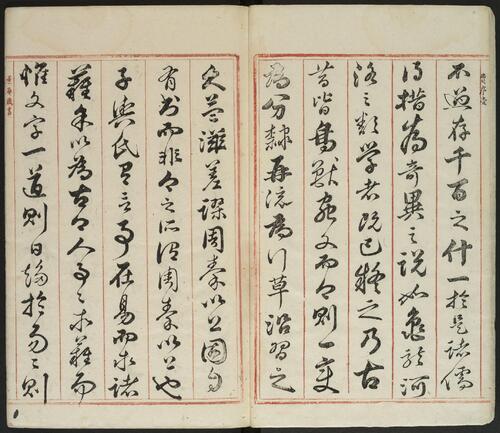 不過存千百之什一於是諸儒
得措為奇異之說如龜龍河
洛之類學者既已疑之乃古
昔皆鳥獸蟲文而今則一變
為分隸再流為行草沿習之
久益滋差謬周秦以上固自
有書而非今之所謂周秦以上也
子輿氏有言事在易而求諸
難余以為古今人事〻求難而
惟文字一道則日趨於易〻則